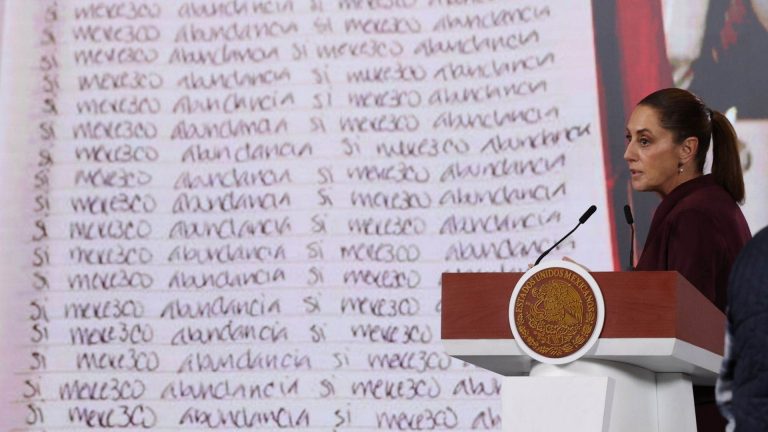 si merezco abundancia si merezco abundancia
si merezco abundancia si merezco abundancia
si merezco abundancia si merezco abundancia
si merezco abundancia si merezco abundancia
si merezco abundancia si merezco abundancia
si merezco abundancia si merezco abundancia
si merezco abundancia si merezco abundancia
si merezco abundancia si merezco abundancia
si merezco abundancia si merezco abundancia
si merezco abundancia si merezco abundancia
si merezco abundancia si merezco abundancia
si merezco abundancia si merezco
si merezco abundancia si merezco
si merezco abundancia si merezco
si merezco abundancia si merezco
si merezco abundancia si merezco abun
si merezco abundancia si merezco abun
ESTADOS UNIDOS MEXICANOS